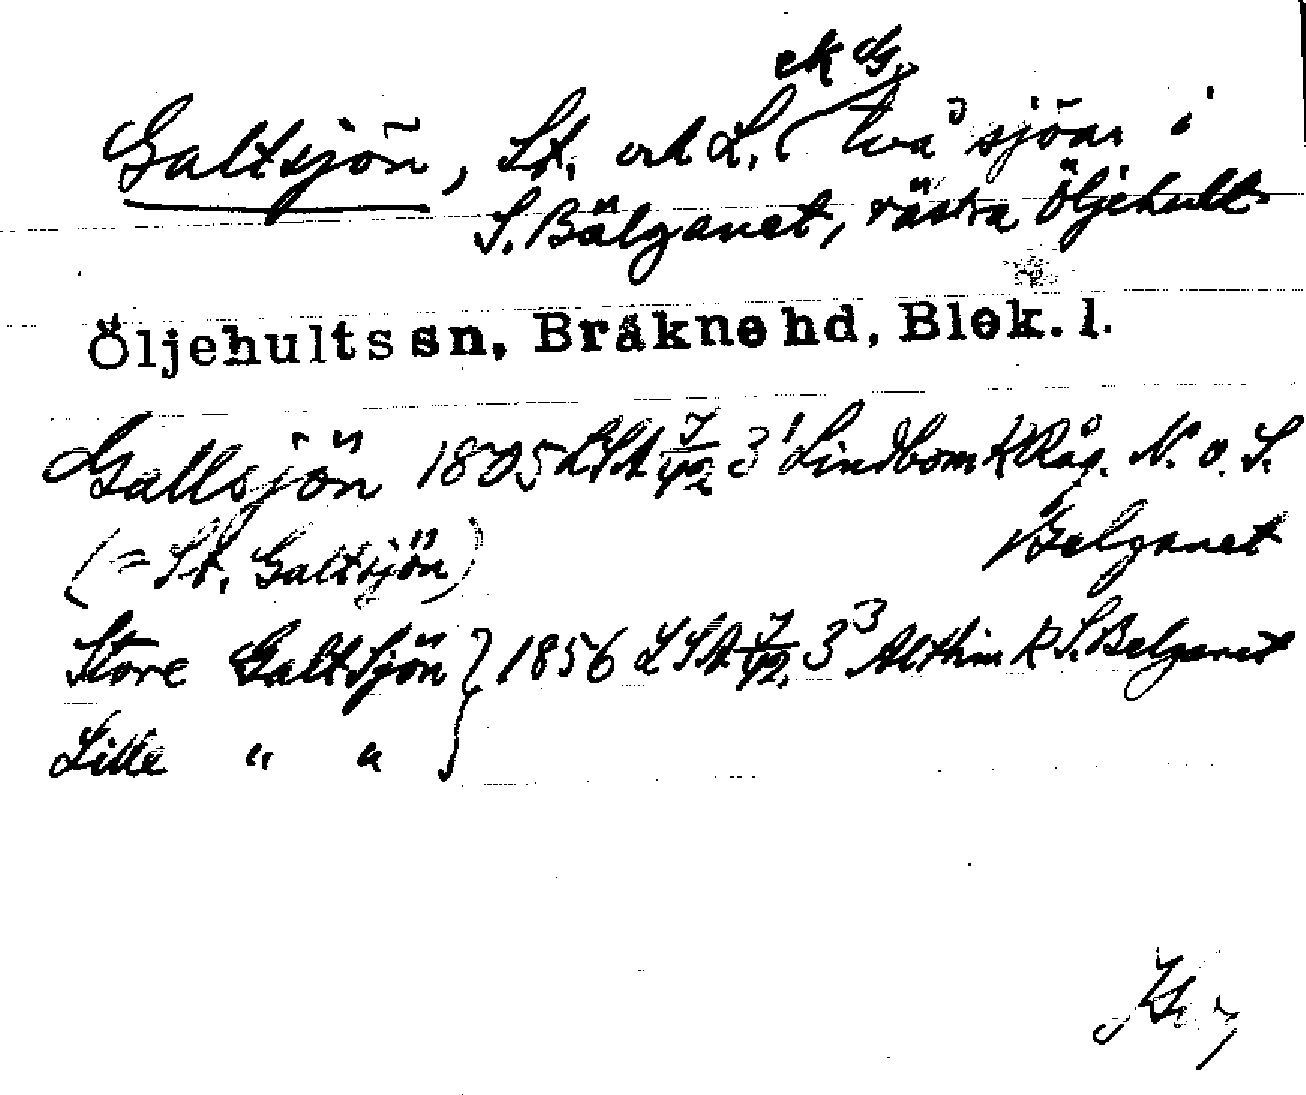 ek G.
Galtsjön, St. och L. två sjöar i
S. Bälganet, västra Öljehult
Öljehults sn, Bräkne hd, Blek. l.
Gallsjön 1805 LSA 7/42 3¹ Lindbom K Råg. N. o. S.
Belganet
(= St. Galtsjön)
Store Galtsjön } 1856 LSA 7/42. 3³ K S. Belganet
Lille " "